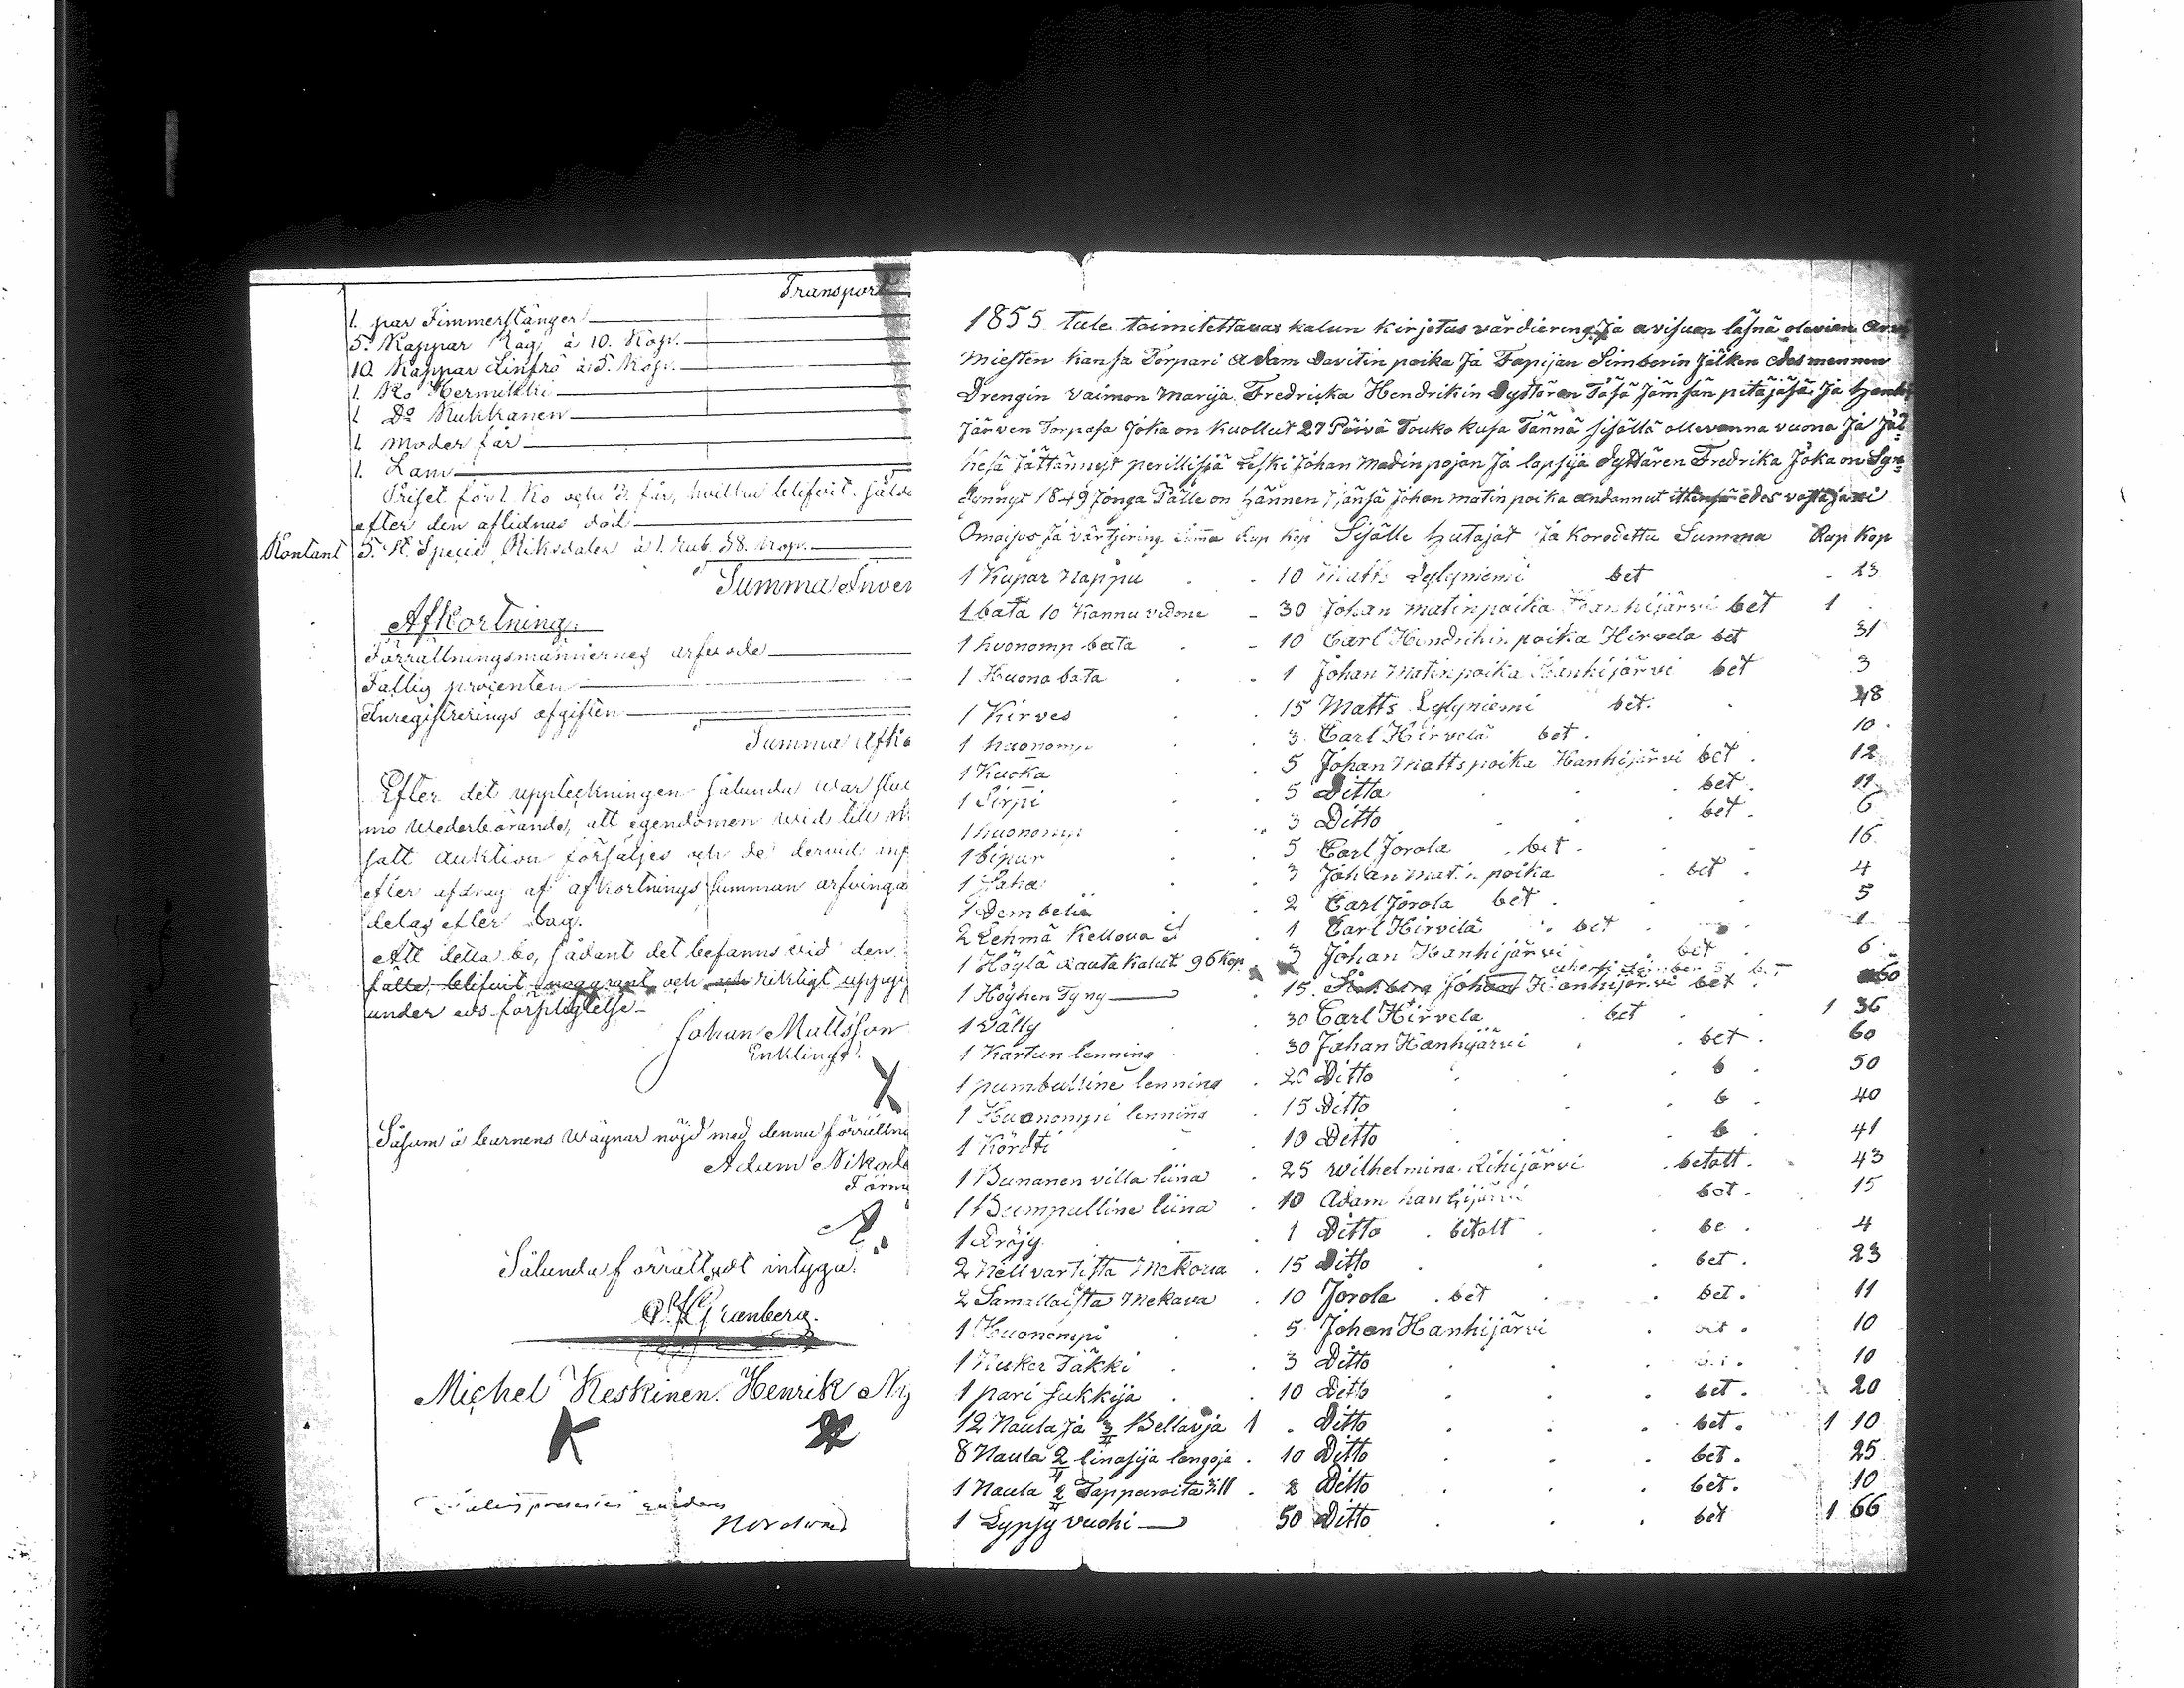 Transport
1. par Timmerstänger
5. Kappar Råg à 10. Kop.
10. Kappar Linfrö à 5. Kop.
1. Ko Hermikki
1 Do Kukkanen
1. Moder får
1. Lam
Priset för 1. Ko och 3. får, hvilka blifvit sålde
efter den aflidnas död
Kontant 5. St. Specie Riksdaler à 1. Rub. 38. Kop.
Summa Inven
Afkortning.
Förrättningsmännernes arfvode
Fattig procenten
Inregistrerings afgiften
Summa Afko
Efter det uppteckningen sålunda war slu
mo Wederbörande, att egendomen wid till
satt Auktion försäljes och de dervid inf
efter afdrag af afkortnings summan arfvinga
delas efter Lag.
Att detta bo, sådant det befanns vid den
fälle, blifvit noggrant och riktigt uppgif
under eds förpligtelse
Johan Mattsson
Enkling.
Såsom å barnens wägnar nöjd med denna förrättni
Adam Nikode
Förmy
Sålunda förrättadt intyga.
Granberg.
Michel Keskinen. Henrik Ny
K
Nordlund
1855 tule toimitettavax kalun kirjotus värdiering Ja avisuon läsnä olevien arvo
Miesten kansa Torpari Adam Davitin poika Ja Tapijan Simberin Jälken edesmennen
Drengin vaimon Marija Fredricka Hendrikin Dyttären Täsä Jämsän pitäjäsä Ja Hanhi
Järven Torpasa Joka on kuollut 27 Päivä Touko kusa Tännä sisällä ollevanna vuona Ja Jäl
kesä Jättännyt perillisiä Leski Johan Madinpojan Ja lapsija Dyttären Fredrika Joka on Syn
dynnyt 1849 Jonga Pälle on hännen Isänsä Johan matin poika andannut ittensä edes vastajaxi
Omaisus Ja värtjering Summa Rup Kop Sisälle hutajat Ja korodettu Summa Rup Kop
1 Kupar nappu 10 Matts Lylyniemi bet 23
1 bata 10 Kannu vedone 30 Johan matinpoika Hanhijärvi bet 1
1 huonomp bata 10 Carl Hendrikin poika Hirvela bet 31
1 Huono bata 1 Johan Matinpoika Hanhijärvi bet 3
1 Kirves 15 Matts Lylyniemi bet. 48
1 huonomp 3 Carl Hirvelä bet. 10
1 Kuoka 5 Johan Mattspoika Hanhijärvi bet. 12
1 Sirpi 5 Ditto bet. 11
1 huonomp 3 Ditto bet. 6
1 Sipur 5 Carl Jorola bet. 16
1 Saha 3 Johan Matin poika bet. 4
1 Dembelii 2 Carl Jorola bet 5
2 Lehmä Kellova 1 Carl Hirvilä bet 1
1 Höylä Rautakalut 96 Kop. 3 Johan Hanhijärvi bet 6
1 Höyhen Tyny 15. Johan Hanhijärvi bet. 60
1 Välly 30 Carl Hirvela bet 1 36
1 Kartun lenning 30 Johan Hanhijärvi bet. 60
1 pumbulline lenning 20 Ditto b 50
1 Huonompi lenning 15 Ditto b 40
1 Körtti 10 Ditto b 41
1 Bunanen villa liina 25 Wilhelmina Rihijärvi betalt. 43
1 Bumpulline liina 10 Adam hanhijärvi bet. 15
1 Dröjy 1 Ditto bitalt be. 4
2 Nellvartista Mekoua 15 Ditto bet. 23
2 Samallaista Mekava 10 Jorola bet bet. 11
1 Huonompi 5 Johan Hanhijärvi bet. 10
1 Nuker Täkki 3 Ditto 10
1 pari sukkija 10 Ditto bet. 20
12 Naula Ja 3/4 Bellavja 1 Ditto bet. 1 10
8 Naula 2/4 linasija langoja 10 Ditto bet. 25
1 Naula 2/4 Tappuroita 2 Ditto bet. 10
1 Lypsy vuohi 50 Ditto bet 1 66